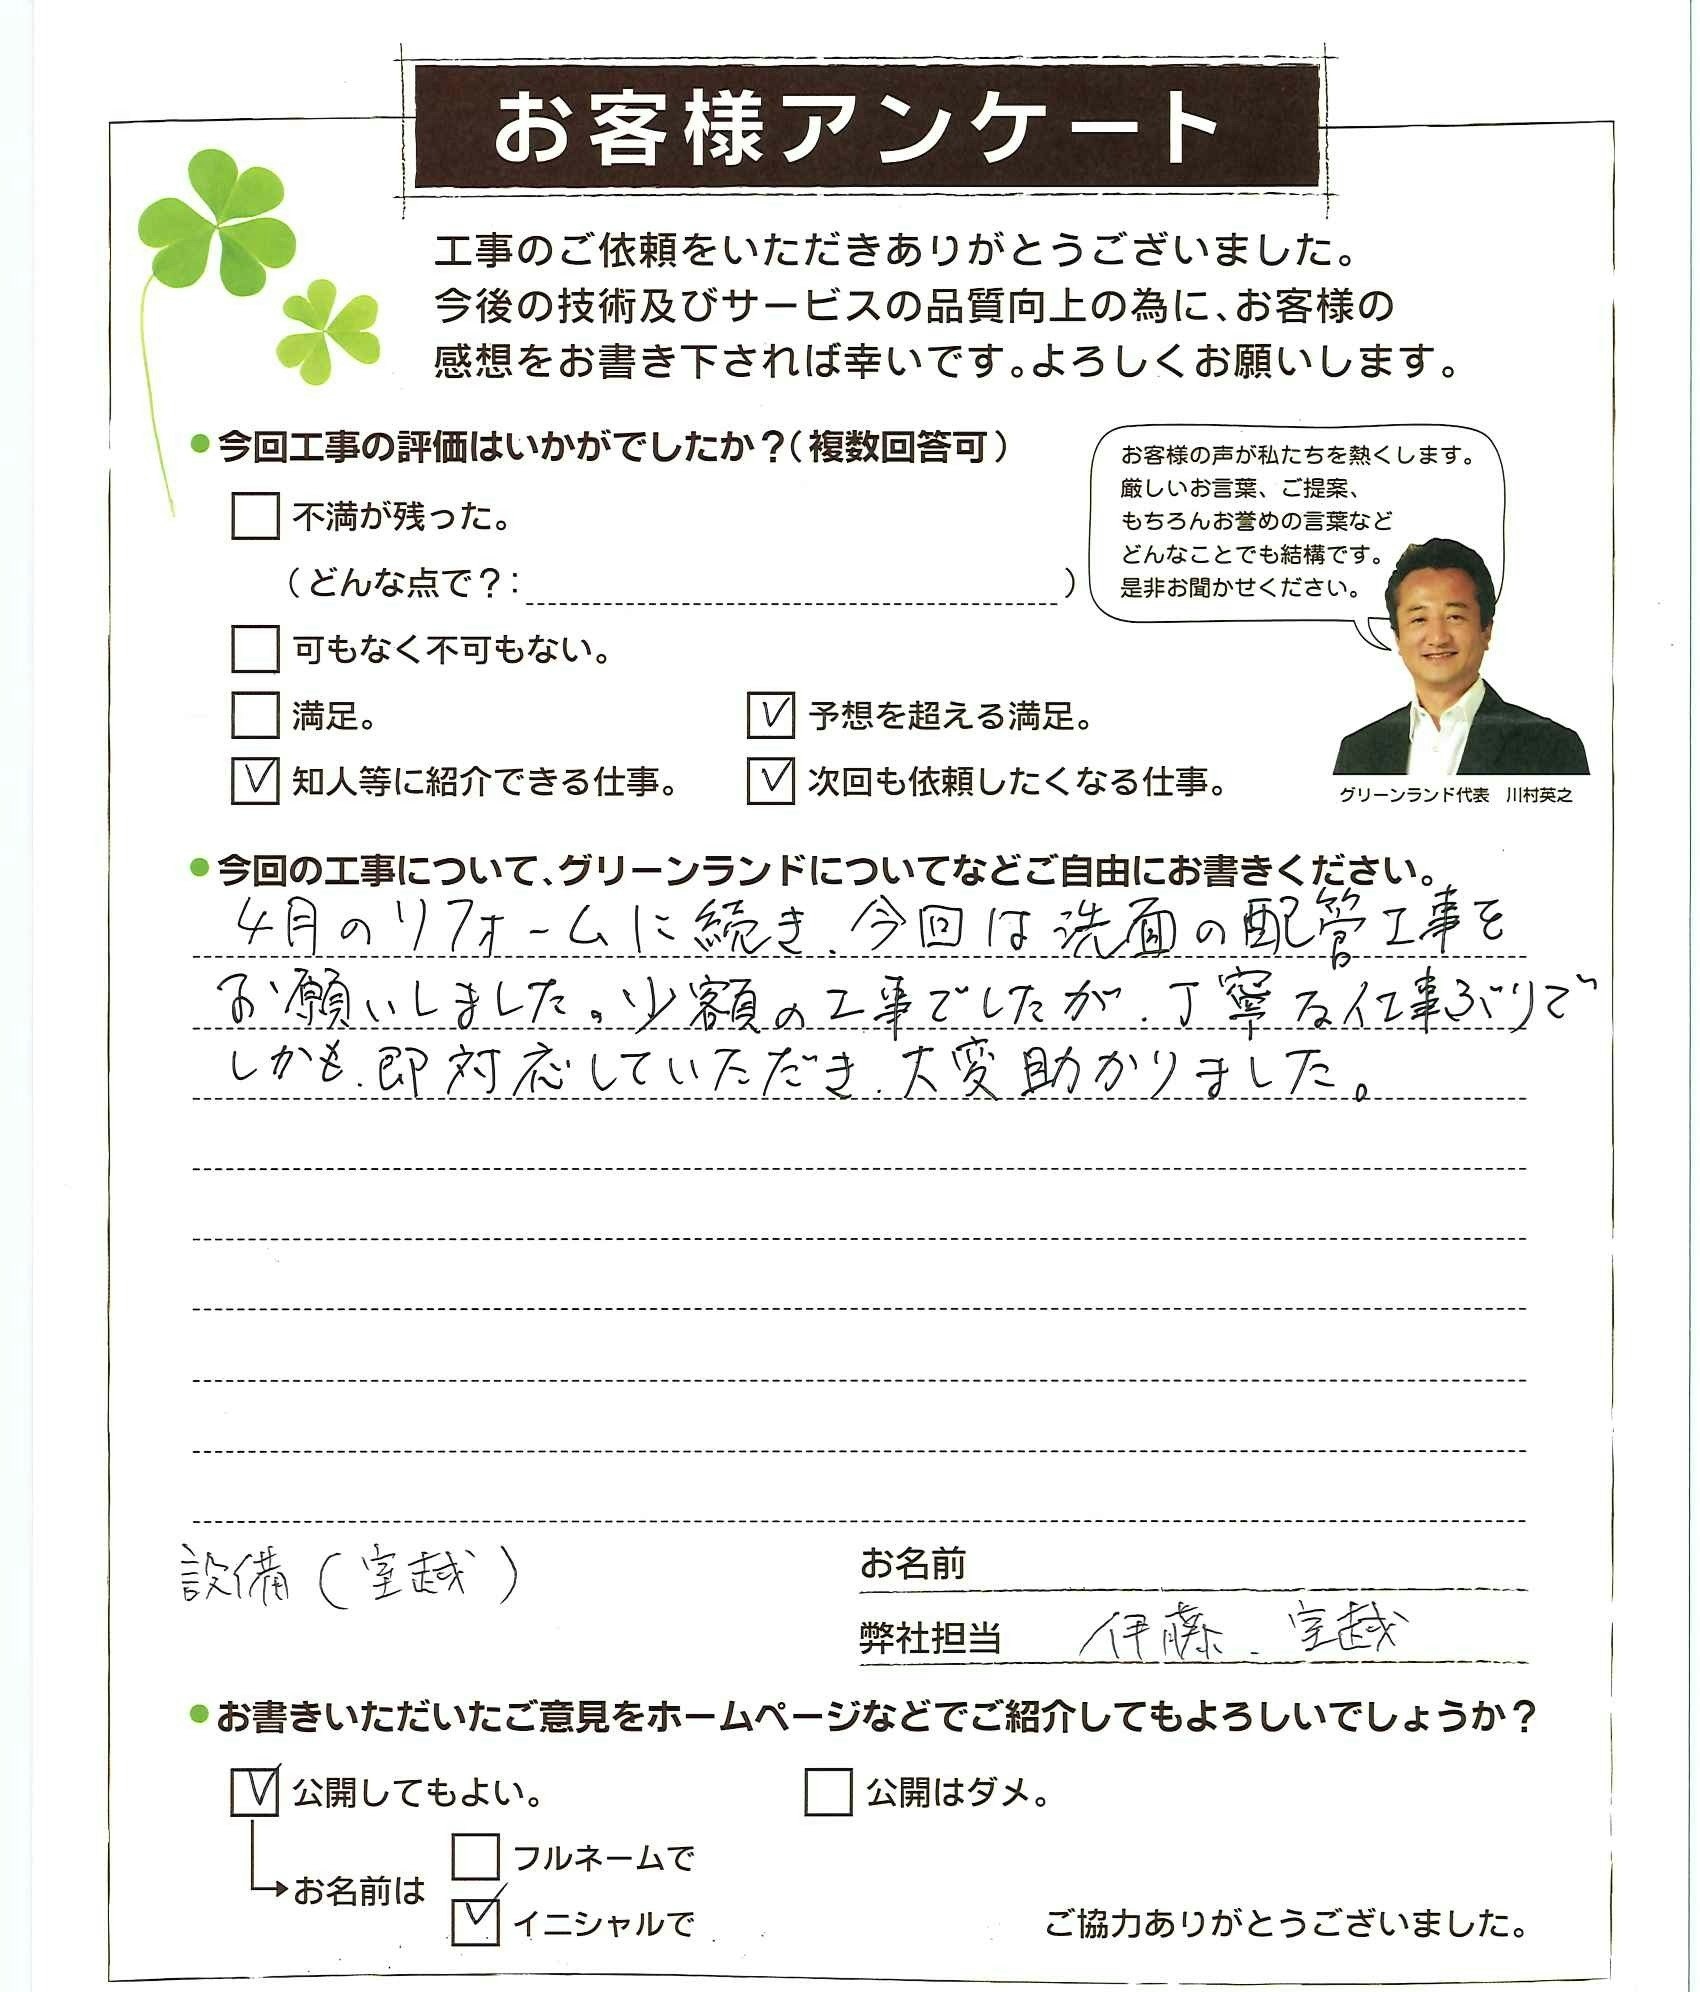 お客様アンケート
工事のご依頼をいただきありがとうございました。
今後の技術及びサービスの品質向上の為に、お客様の
感想をお書き下されば幸いです。よろしくお願いします。
●今回工事の評価はいかがでしたか？（複数回答可）
不満が残った。
（どんな点で？：　）
可もなく不可もない。
満足。
予想を超える満足。
知人等に紹介できる仕事。
次回も依頼したくなる仕事。
お客様の声が私たちを熱くします。
厳しいお言葉、ご提案、
もちろんお誉めの言葉など
どんなことでも結構です。
是非お聞かせください。
グリーンランド代表　川村英之
●今回の工事について、グリーンランドについてなどご自由にお書きください。
4月のリフォームに続き、今回は洗面の配管工事を
お願いしました。少額の工事でしたが、丁寧な仕事ぶりで
しかも、即対応していただき、大変助かりました。
設備（室越）
お名前
弊社担当　伊藤、室越
●お書きいただいたご意見をホームページなどでご紹介してもよろしいでしょうか？
公開してもよい。
公開はダメ。
お名前は
フルネームで
イニシャルで
ご協力ありがとうございました。